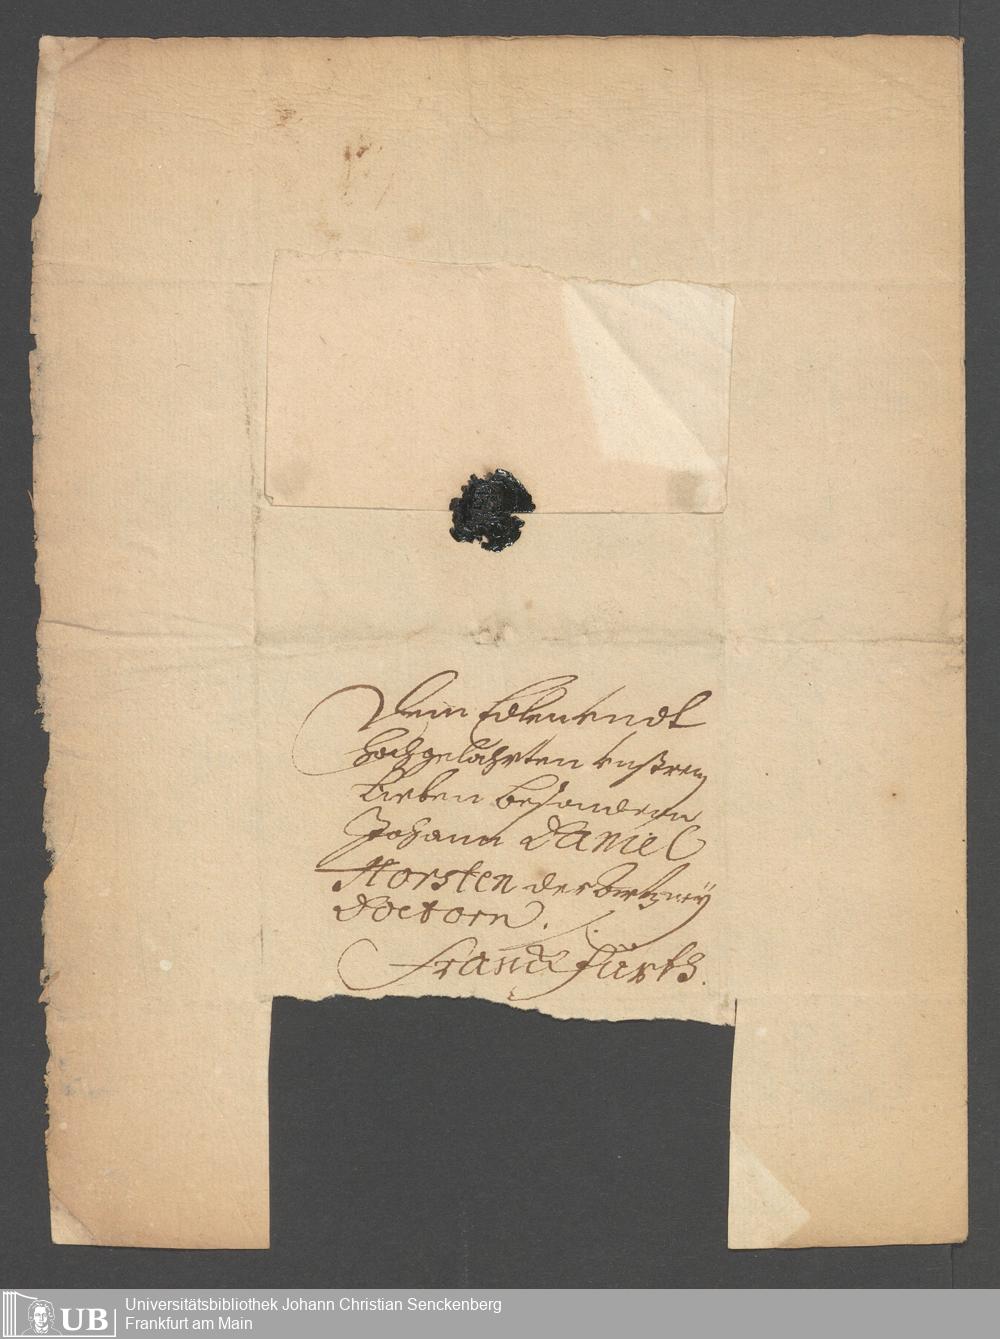 Dem Edlen undt
hochgelährten unßrem
Lieben besondern
Johann Daniel
Horsten der Artzney
Doctorn.
Franckfürth.
UB
Universitätsbibliothek Johann Christian Senckenberg
Frankfurt am Main